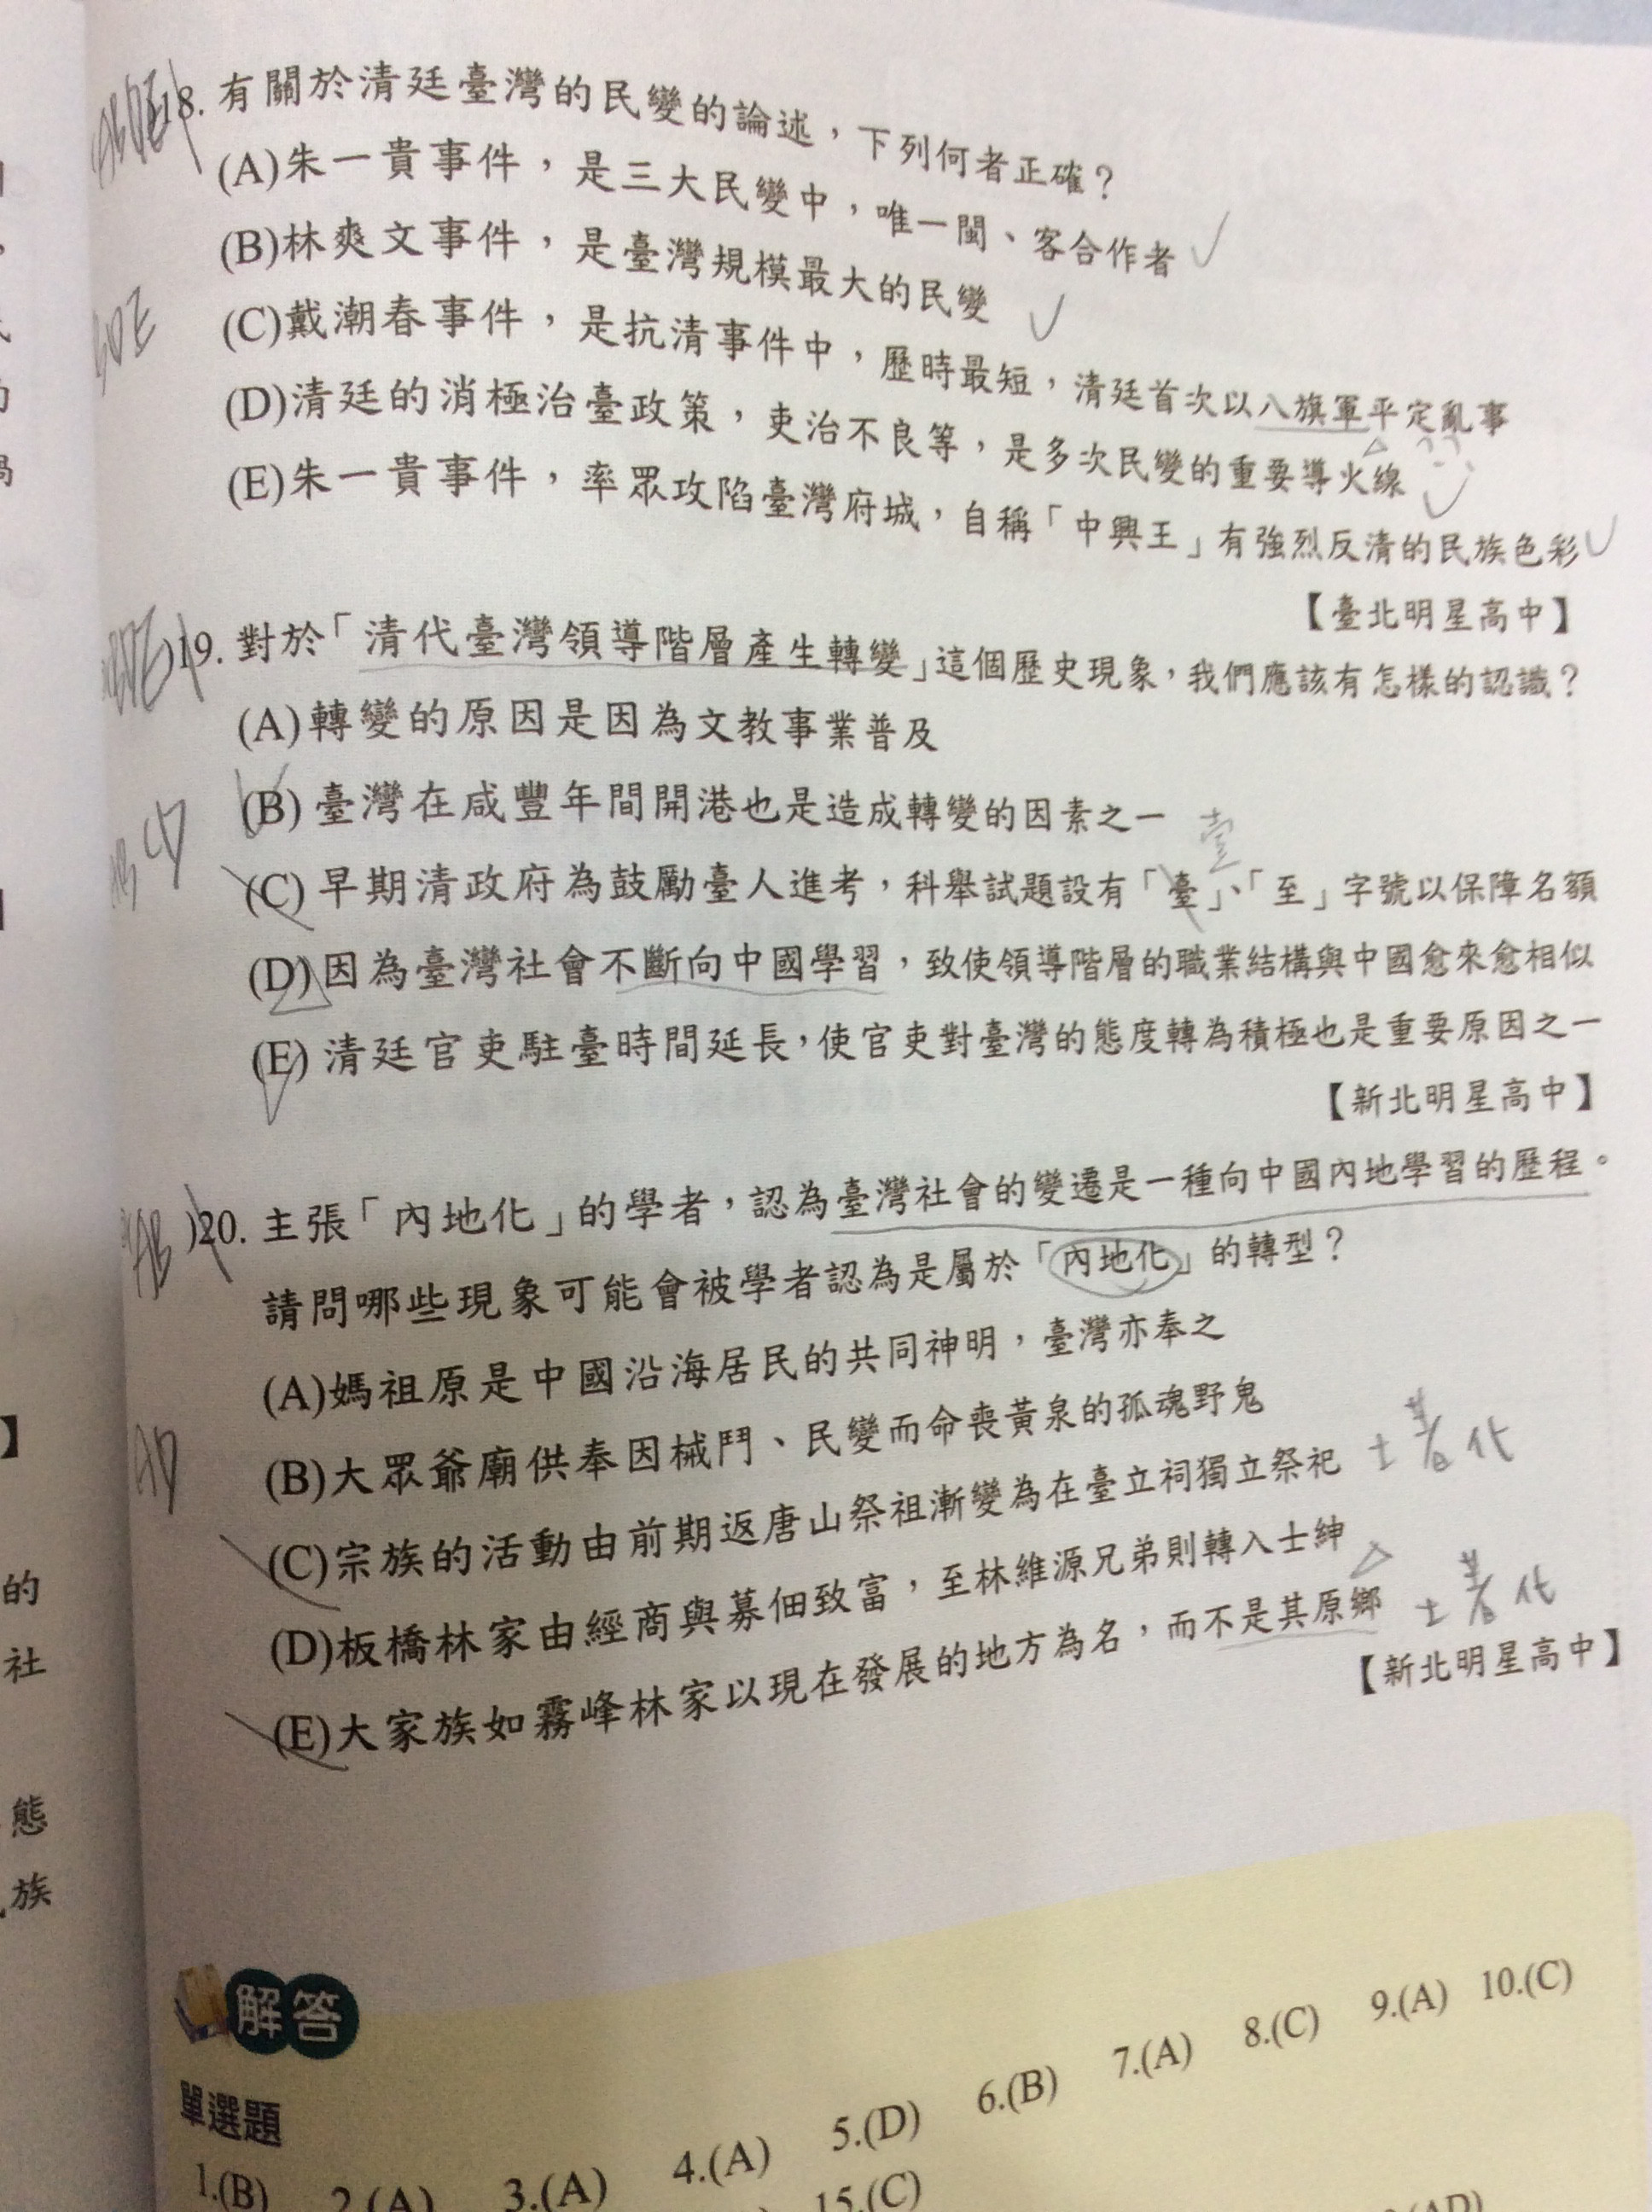 ABDE 18. 有關於清廷臺灣的民變的論述，下列何者正確？
(A)朱一貴事件，是三大民變中，唯一閩、客合作者
(B)林爽文事件，是臺灣規模最大的民變
BDE
(C)戴潮春事件，是抗清事件中，歷時最短，清廷首次以八旗軍平定亂事
(D)清廷的消極治臺政策，吏治不良等，是多次民變的重要導火線
(E)朱一貴事件，率眾攻陷臺灣府城，自稱「中興王」有強烈反清的民族色彩
【臺北明星高中】
)19. 對於「清代臺灣領導階層產生轉變」這個歷史現象，我們應該有怎樣的認識？
(A)轉變的原因是因為文教事業普及
(B)臺灣在咸豐年間開港也是造成轉變的因素之一
壹
(C)早期清政府為鼓勵臺人進考，科舉試題設有「臺」、「至」字號以保障名額
(D)因為臺灣社會不斷向中國學習，致使領導階層的職業結構與中國愈來愈相似
(E)清廷官吏駐臺時間延長，使官吏對臺灣的態度轉為積極也是重要原因之一
【新北明星高中】
AB )20. 主張「內地化」的學者，認為臺灣社會的變遷是一種向中國內地學習的歷程。
請問哪些現象可能會被學者認為是屬於「內地化」的轉型？
(A)媽祖原是中國沿海居民的共同神明，臺灣亦奉之
(B)大眾爺廟供奉因械鬥、民變而命喪黃泉的孤魂野鬼
AD
(C)宗族的活動由前期返唐山祭祖漸變為在臺立祠獨立祭祀 土著化
(D)板橋林家由經商與募佃致富，至林維源兄弟則轉入士紳
(E)大家族如霧峰林家以現在發展的地方為名，而不是其原鄉 土著化
【新北明星高中】
解答
單選題
1.(B) 2.(A) 3.(A) 4.(A) 5.(D) 6.(B) 7.(A) 8.(C) 9.(A) 10.(C)
15.(C)
(AD)
】
的
社
態
族